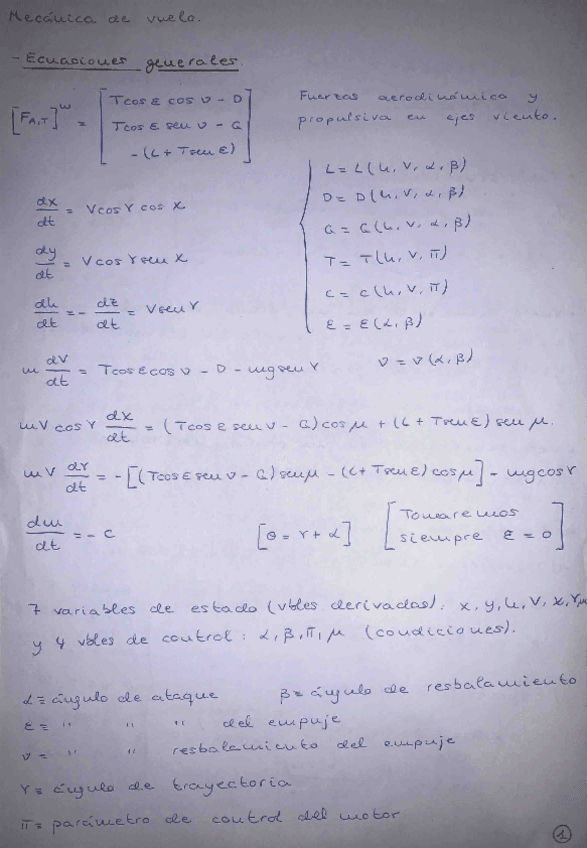 Mecánica de vuelo.
- Ecuaciones generales.
[F_A,T]^w = [ T cos ε cos ν - D
T cos ε sen ν - Q
- (L + T sen ε) ]
Fuerzas aerodinámica y
propulsiva en ejes viento.
L = L(h, V, α, β)
D = D(h, V, α, β)
Q = Q(h, V, α, β)
T = T(h, V, π)
c = c(h, V, π)
ε = ε(α, β)
ν = ν(α, β)
dx/dt = V cos γ cos χ
dy/dt = V cos γ sen χ
dh/dt = - dz/dt = V sen γ
m dV/dt = T cos ε cos ν - D - mg sen γ
mV cos γ dχ/dt = (T cos ε sen ν - Q) cos μ + (L + T sen ε) sen μ.
mV dγ/dt = - [(T cos ε sen ν - Q) sen μ - (L + T sen ε) cos μ] - mg cos γ
dm/dt = - c
[θ = γ + α]
[Tomaremos
siempre ε = 0]
7 variables de estado (vbles derivadas): x, y, h, V, χ, γ, m
y 4 vbles de control: α, β, π, μ (condiciones).
α ≡ ángulo de ataque
β ≡ ángulo de resbalamiento
ε ≡ " " " del empuje
ν ≡ " " resbalamiento del empuje
γ ≡ ángulo de trayectoria
π ≡ parámetro de control del motor
1